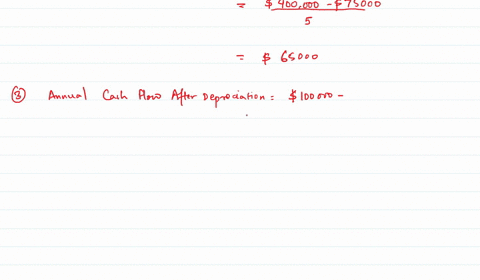 = $ 400,000 - $ 75000
5
= $ 65000
③ Annual Cash Flow After Depreciation = $ 100000 -